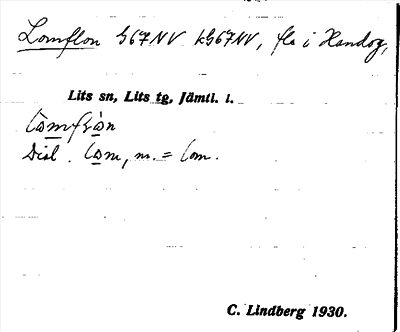 Lomflon 567NV k567NV, fls i Handog,
Lits sn, Lits tg, Jämtl. l.
lòmfràn
Dial. lòm, m. = lom.
C. Lindberg 1930.